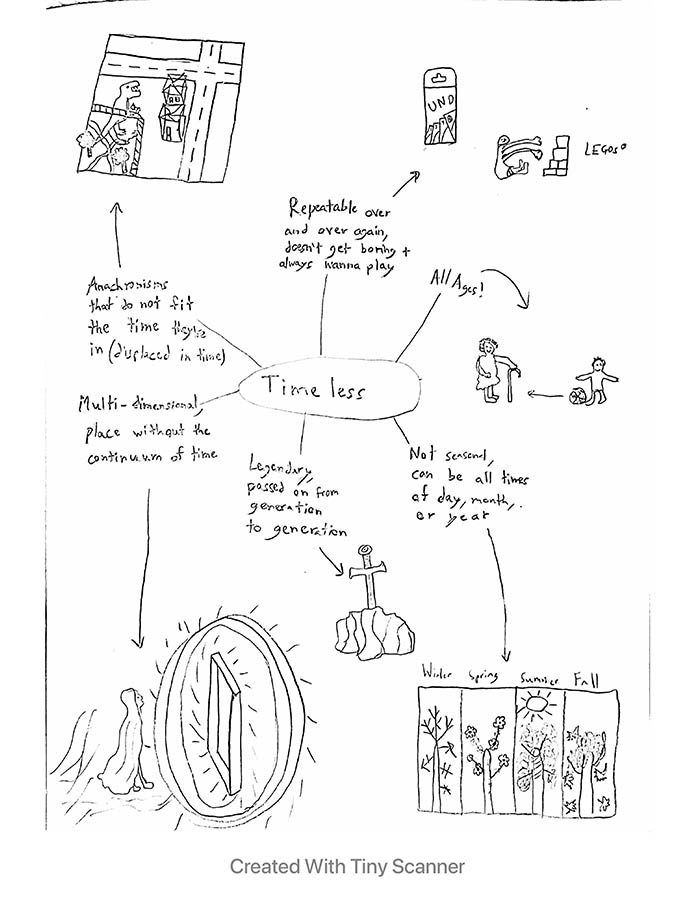 UNO
LEGOs
Repeatable over
and over again,
doesn't get boring +
always wanna play
All Ages!
Anachronisms
that do not fit
the time they're
in (displaced in time)
Timeless
Multi-dimensional,
place without the
continuum of time
Legendary,
passed on from
generation
to generation
Not seasonal,
can be all times
of day, month,
or year
Winter Spring Summer Fall
Created With Tiny Scanner